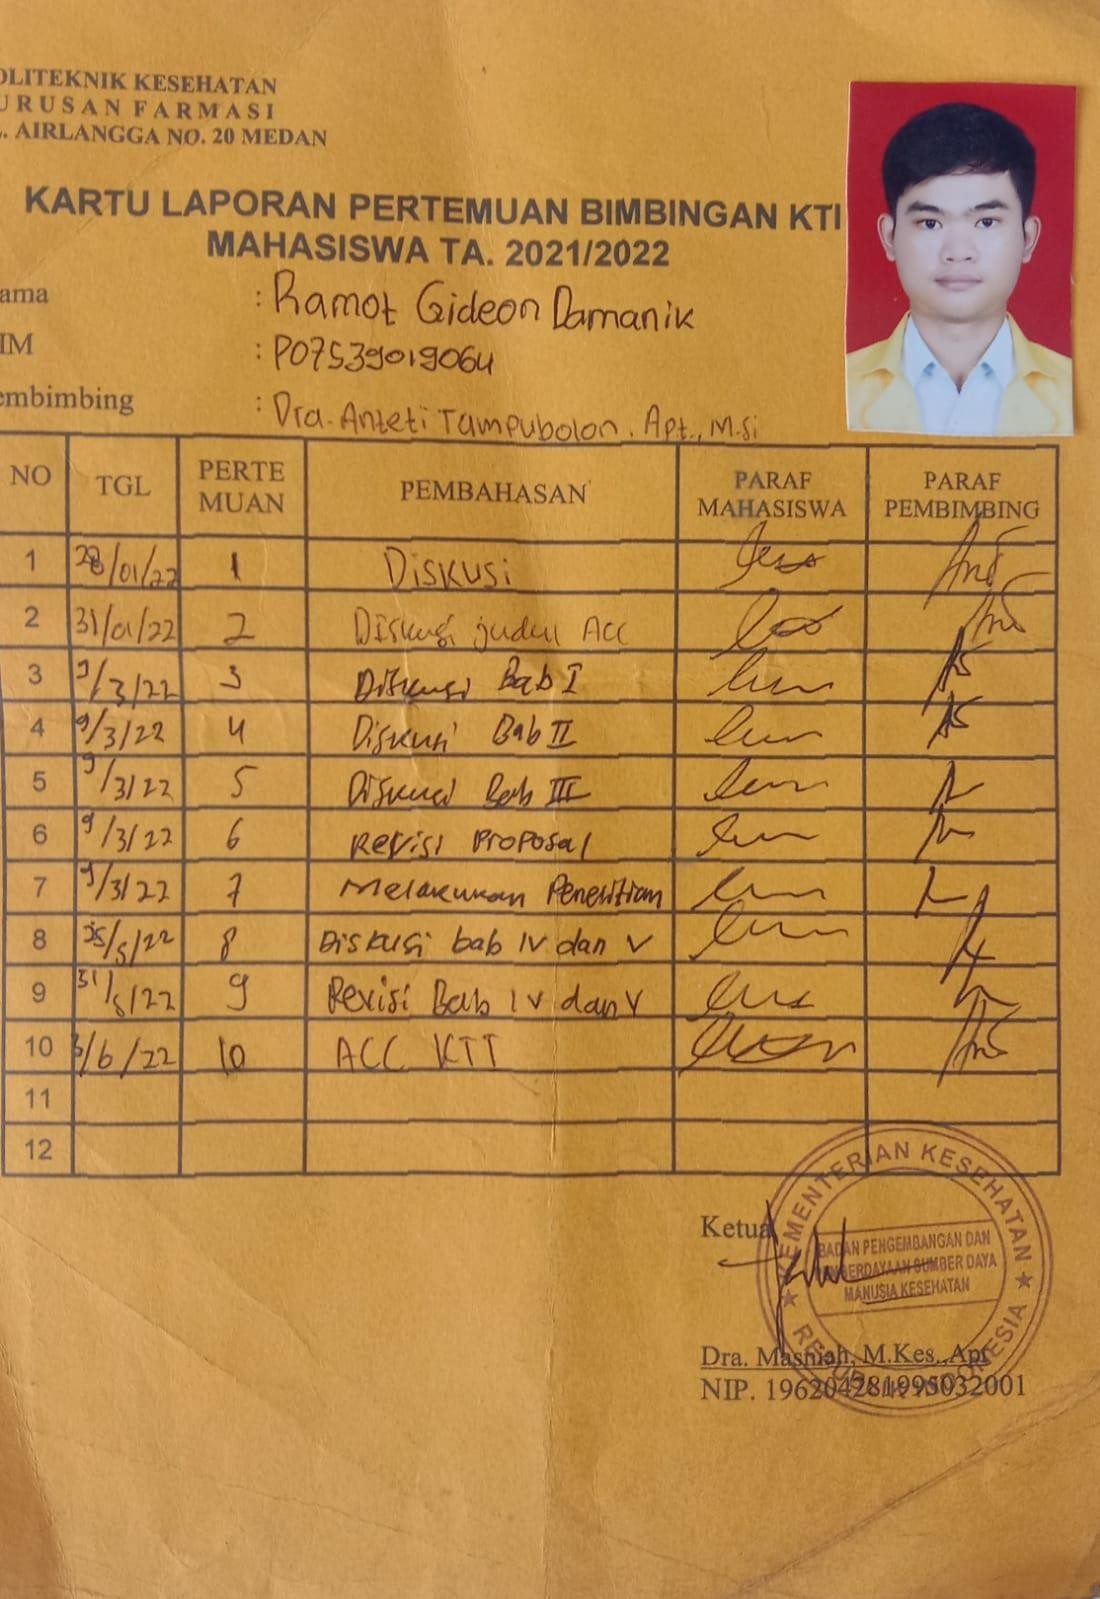 OLITEKNIK KESEHATAN
URUSAN FARMASI
L. AIRLANGGA NO. 20 MEDAN
KARTU LAPORAN PERTEMUAN BIMBINGAN KTI
MAHASISWA TA. 2021/2022
ama : Ramot Gideon Damanik
IM : P07539019064
embimbing : Dra. Anteti Tampubolon. Apt., M.Si
NO TGL PERTE MUAN PEMBAHASAN PARAF MAHASISWA PARAF PEMBIMBING
1 28/01/22 1 Diskusi
2 31/01/22 2 Diskusi judul ACC
3 9/3/22 3 Diskusi Bab I
4 9/3/22 4 Diskusi Bab II
5 9/3/22 5 Diskusi Bab III
6 9/3/22 6 Revisi Proposal
7 9/3/22 7 Melakukan Penelitian
8 /5/22 8 Diskusi bab IV dan V
9 31/5/22 9 Revisi Bab IV dan V
10 3/6/22 10 ACC KTI
11
12
Ketua
KEMENTERIAN KESEHATAN
BADAN PENGEMBANGAN DAN
PEMBERDAYAAN SUMBER DAYA
MANUSIA KESEHATAN
REPUBLIK INDONESIA
Dra. Masniah, M.Kes., Apt
NIP. 196204281995032001